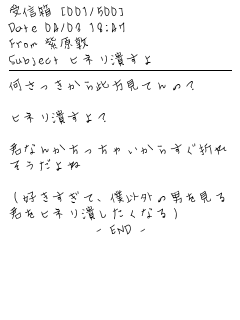 受信箱 [001/500]
Date 04/03 18:47
From 紫原敦
Subject ヒネリ潰すよ
何さっきから此方見てんの？
ヒネリ潰すよ？
君なんかちっちゃいからすぐ折れ
そうだよね
(好きすぎて、僕以外の男を見る
君をヒネリ潰したくなる)
- END -